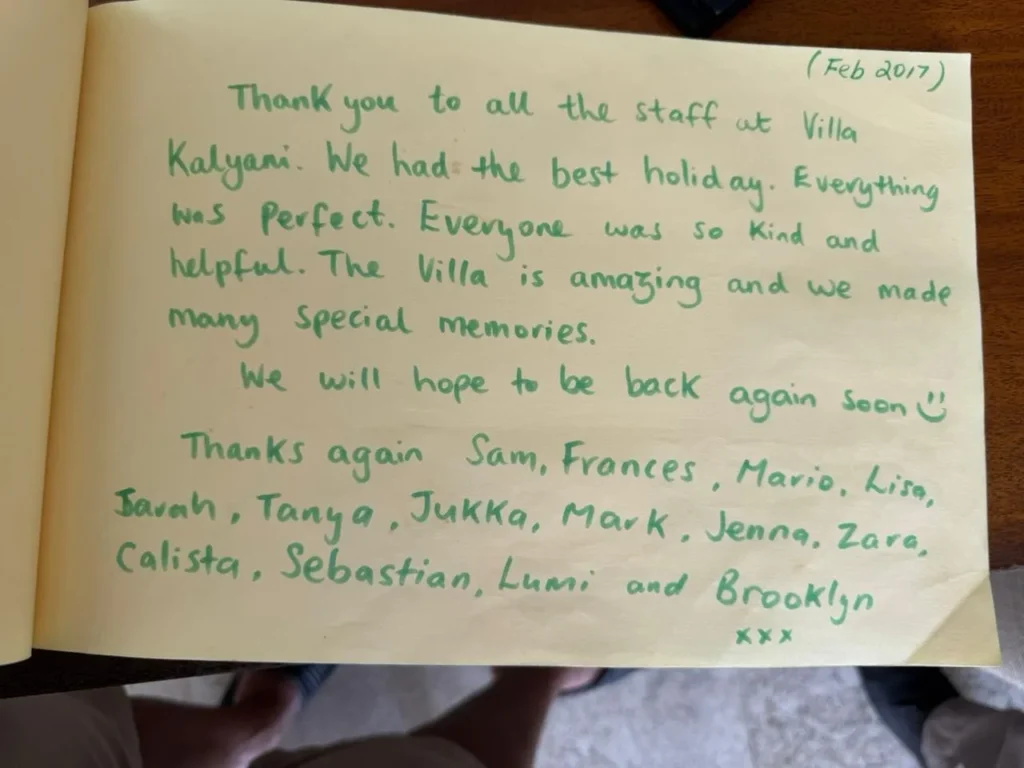 (Feb 2017)
Thank you to all the staff at Villa
Kalyani. We had the best holiday. Everything
was perfect. Everyone was so kind and
helpful. The Villa is amazing and we made
many special memories.
We will hope to be back again soon
Thanks again Sam, Frances, Mario, Lisa,
Sarah, Tanya, Jukka, Mark, Jenna, Zara,
Calista, Sebastian, Lumi and Brooklyn
xxx